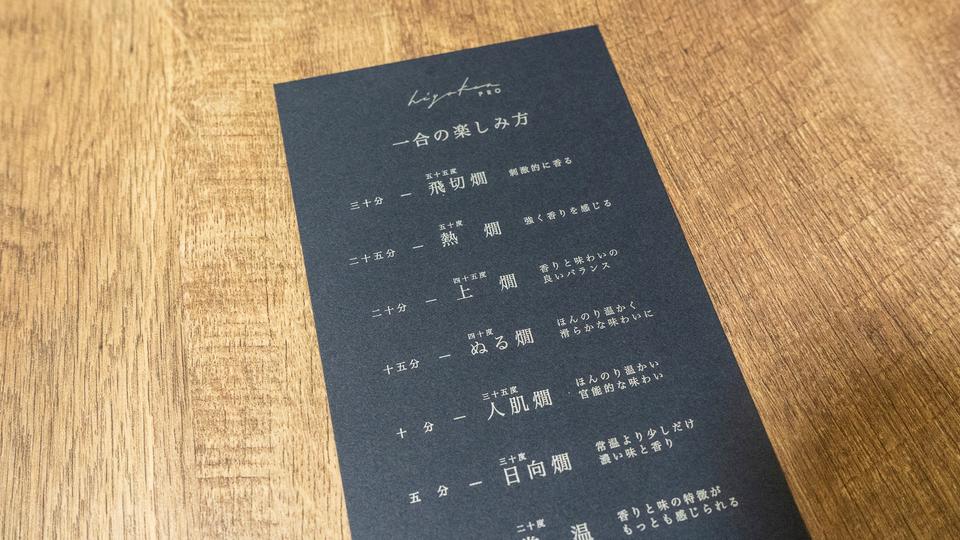 hiyakan
PRO
一合の楽しみ方
三十分 — 飛切燗 五十五度 刺激的に香る
二十五分 — 熱燗 五十度 強く香りを感じる
二十分 — 上燗 四十五度 香りと味わいの
良いバランス
十五分 — ぬる燗 四十度 ほんのり温かく
滑らかな味わいに
十分 — 人肌燗 三十五度 ほんのり温かい
官能的な味わい
五分 — 日向燗 三十度 常温より少しだけ
濃い味と香り
常温 二十度 香りと味の特徴が
もっとも感じられる